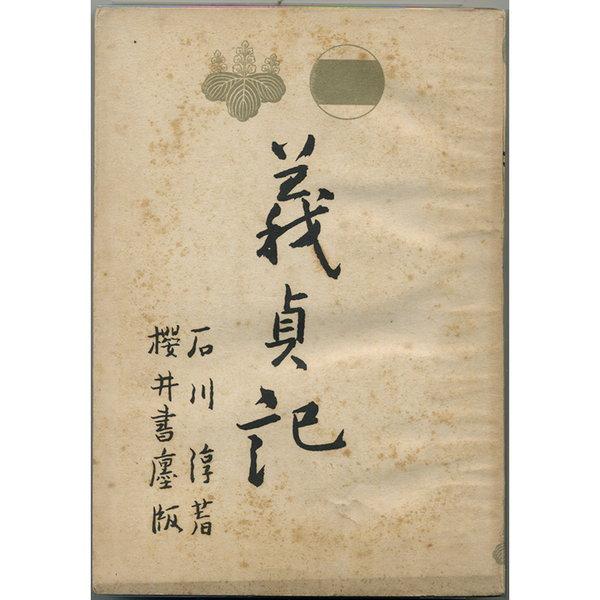 義貞記
石川淳著
櫻井書廛版